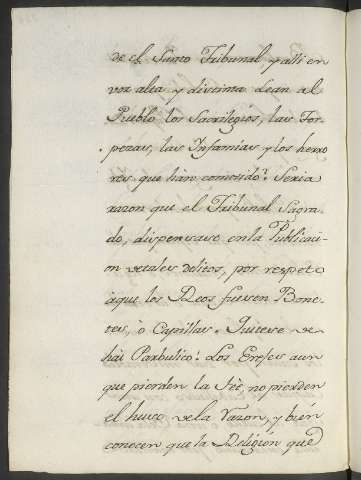 de el Santo Tribunal y alli en
voz alta y distinta Lean al
Pueblo los Sacrilegios, las Tor-
pezas, las Infamias y los herro
res que hàn cometido? Seria
razon que el Tribunal Sagra-
do, dispensase en la Publicaci-
on de tales delitos, por respeto
à que los Reos fuesen Bone-
tes, ò Capillas.
hài Parbulico? Los Ereges aun
que pierden la Feè, no pierden
el huso de la Razon, y bien
conocen que la Religion que